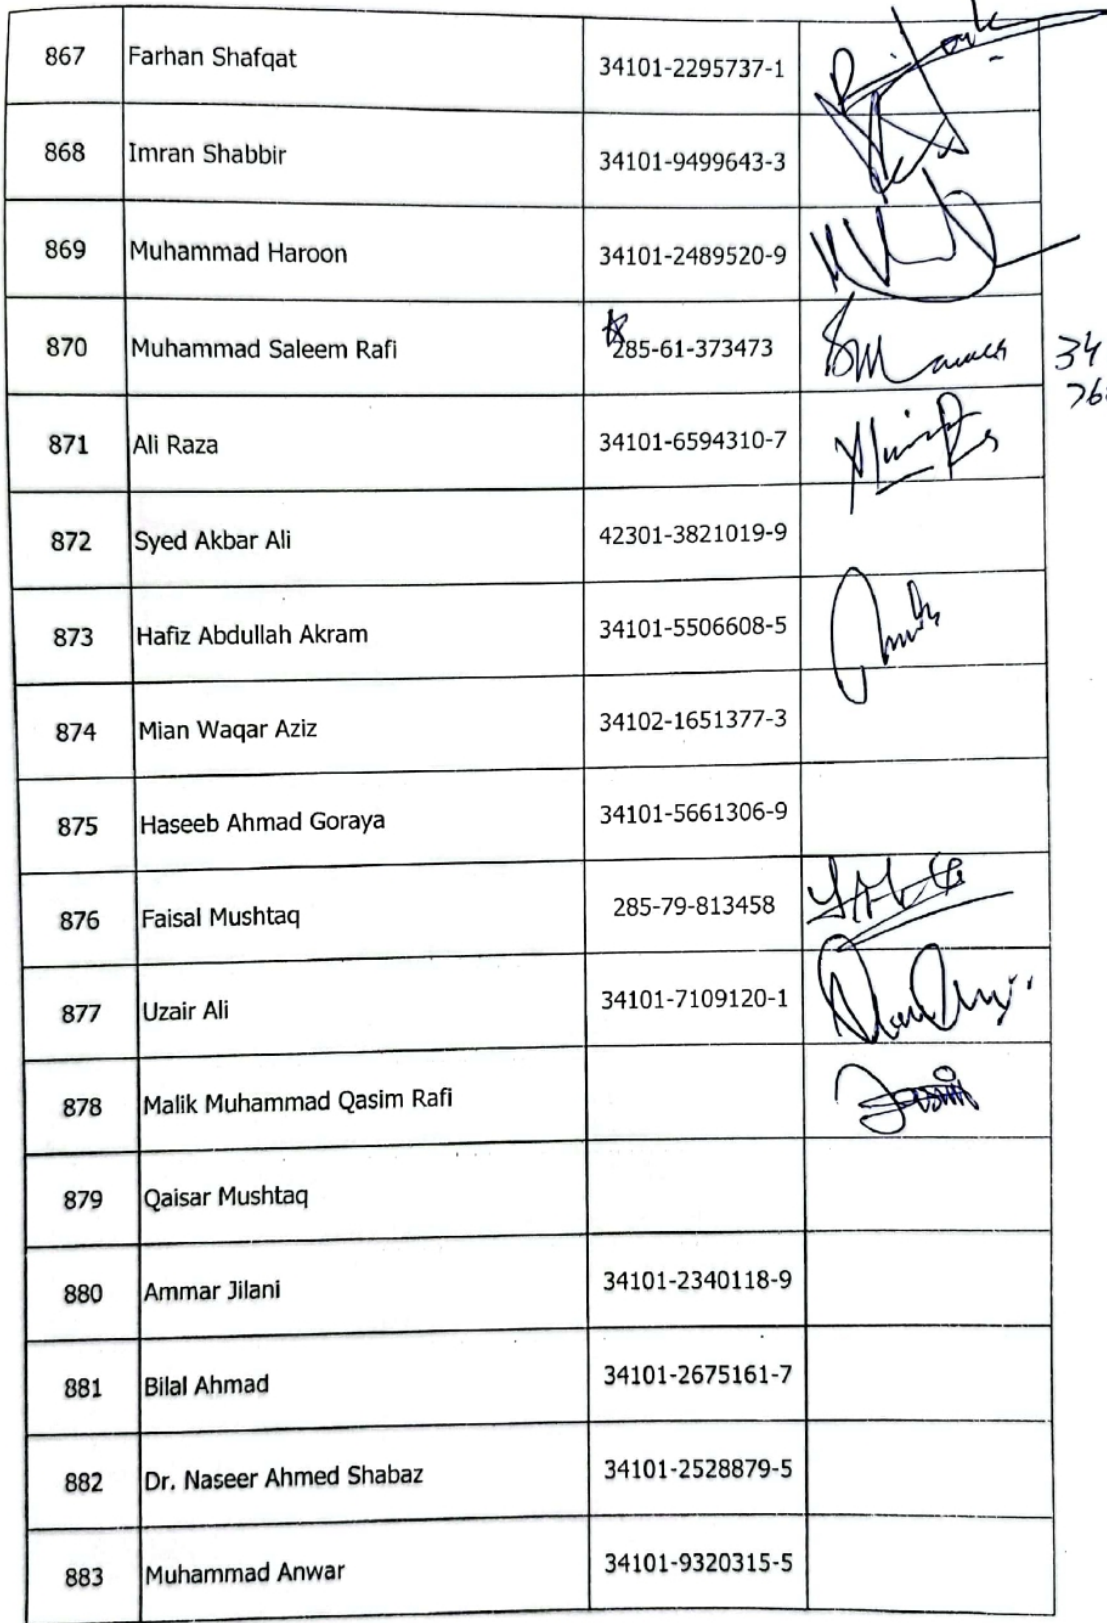 867 Farhan Shafqat 34101-2295737-1
868 Imran Shabbir 34101-9499643-3
869 Muhammad Haroon 34101-2489520-9
870 Muhammad Saleem Rafi 285-61-373473 34
871 Ali Raza 34101-6594310-7
872 Syed Akbar Ali 42301-3821019-9
873 Hafiz Abdullah Akram 34101-5506608-5
874 Mian Waqar Aziz 34102-1651377-3
875 Haseeb Ahmad Goraya 34101-5661306-9
876 Faisal Mushtaq 285-79-813458
877 Uzair Ali 34101-7109120-1
878 Malik Muhammad Qasim Rafi
879 Qaisar Mushtaq
880 Ammar Jilani 34101-2340118-9
881 Bilal Ahmad 34101-2675161-7
882 Dr. Naseer Ahmed Shabaz 34101-2528879-5
883 Muhammad Anwar 34101-9320315-5